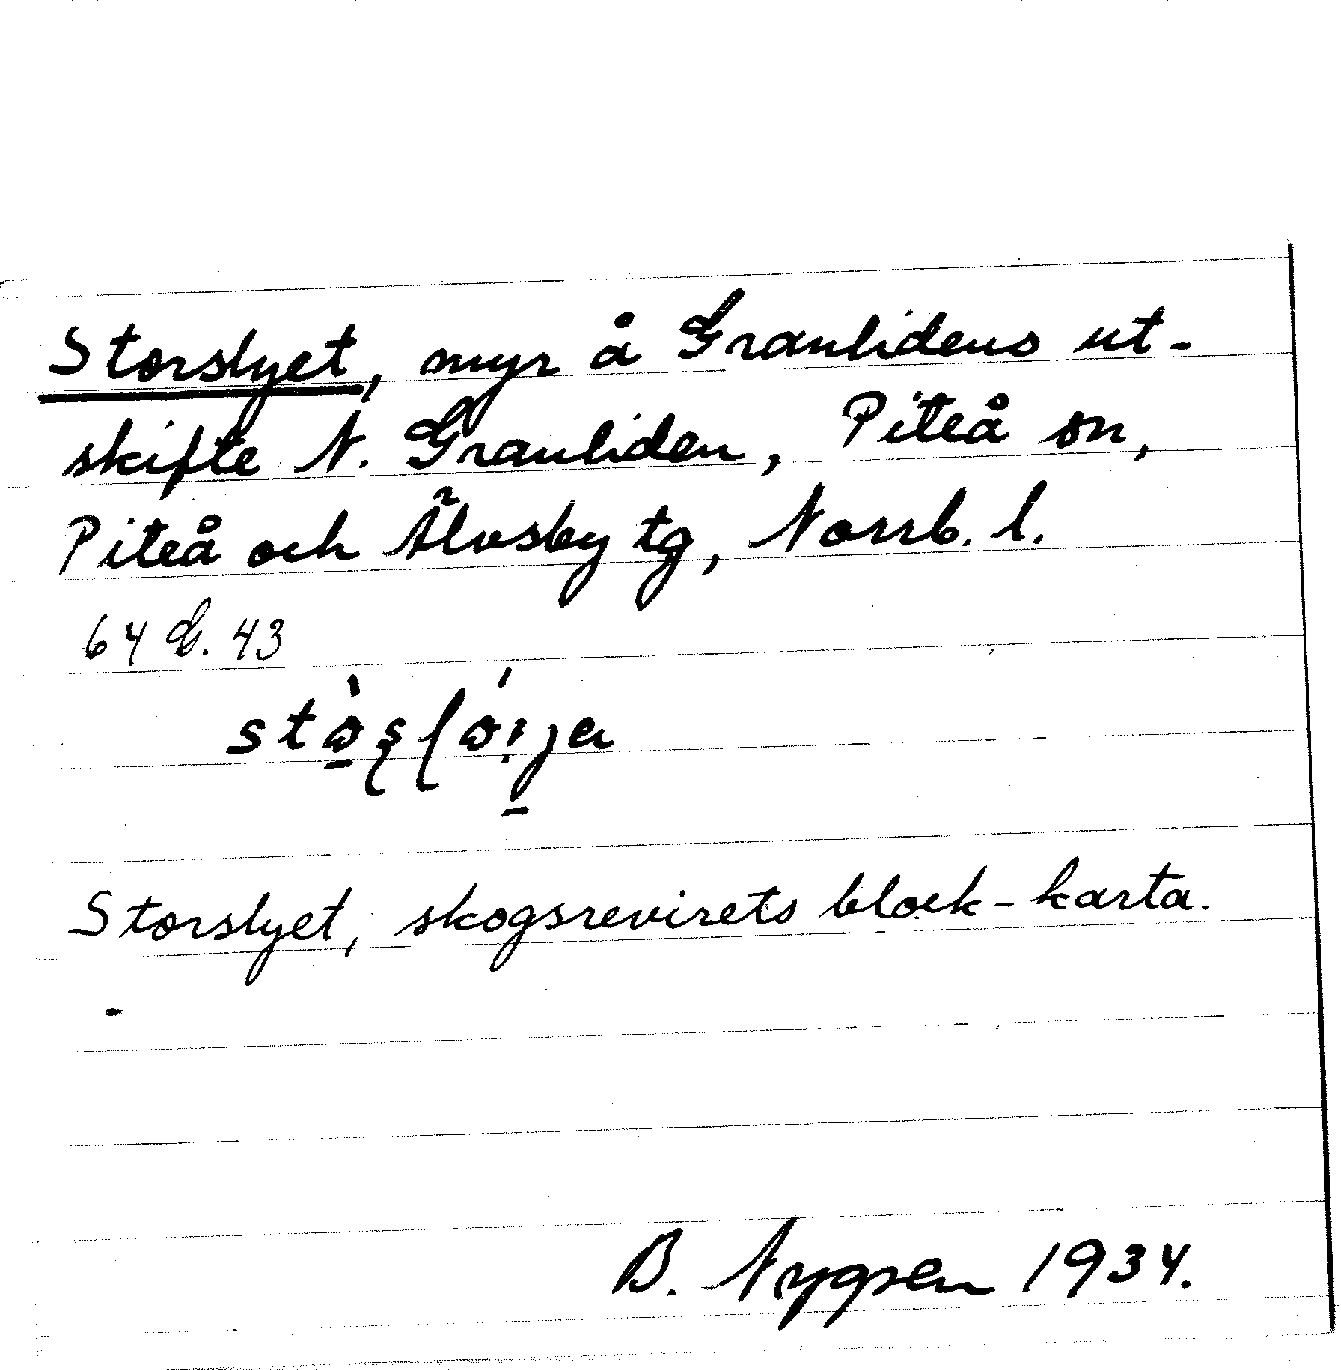 Storslyet, myr å Granlidens ut-
skifte N. Granliden, Piteå sn,
Piteå och Älvsby tg, Norrb. l.
64 G. 43
Storslyet, skogsrevirets block-karta.
B. Nygren 1934.